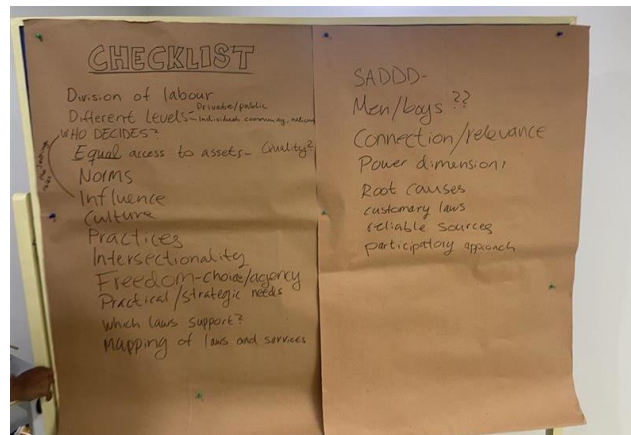 CHECKLIST
Division of labour
Private/public
Different levels- Individual, community, nation
WHO DECIDES?
Equal access to assets- Quality?
Norms
Influence
Culture
Practices
Intersectionality
Freedom-choice/agency
Practical/strategic needs
Which laws support?
Mapping of laws and services
SADDD-
Men/boys ??
Connection/relevance
Power dimension,
Root causes
customary laws
reliable sources
participatory approach